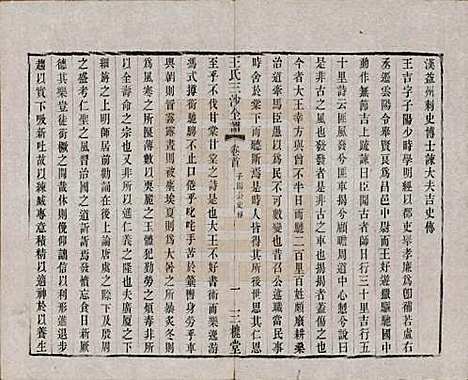 漢益州刺史博士諫大夫吉史傳
王吉字子陽少時學明經以郡吏舉孝廉爲郎補若盧右
丞遷雲陽令舉賢良爲昌邑中尉而王好遊獵驅馳國中
動作無節吉上疏諫曰臣聞古者師日行三十里吉行五
十里詩云匪風發兮匪車揭兮顧瞻周道中心怛兮說曰
是非古之風也發發者是非古之車也揭揭者蓋傷之也
今者大王幸方與曾不半日而馳二百里百姓頗廢耕桑
治道牽馬臣愚以爲民不可數變也昔召公述職當民事
時舍於棠下而聽斷焉是時人皆得其所後世思其仁恩
至乎不伐甘棠甘棠之詩是也大王不好書術而樂逸游
王氏三沙全譜 卷首 一 三槐堂
馮式撙銜馳騁不止口倦乎叱咤手苦於箠轡身勞乎車
輿朝則冒霧露晝則被塵埃夏則爲大暑之所暴炙冬則
爲風寒之所匽薄數以耎脆之玉體犯勤勞之煩毒非所
以全壽命之宗也又非所以進仁義之隆也夫廣廈之下
細旃之上明師居前勸誦在後上論唐虞之際下及殷周
之盛考仁聖之風習治國之道訢訢焉發憤忘食日新厥
德其樂豈徒銜橛之間哉休則俛仰詘信以利形進退步
趨以實下吸新吐故以練臧專意積精以適神於以養生